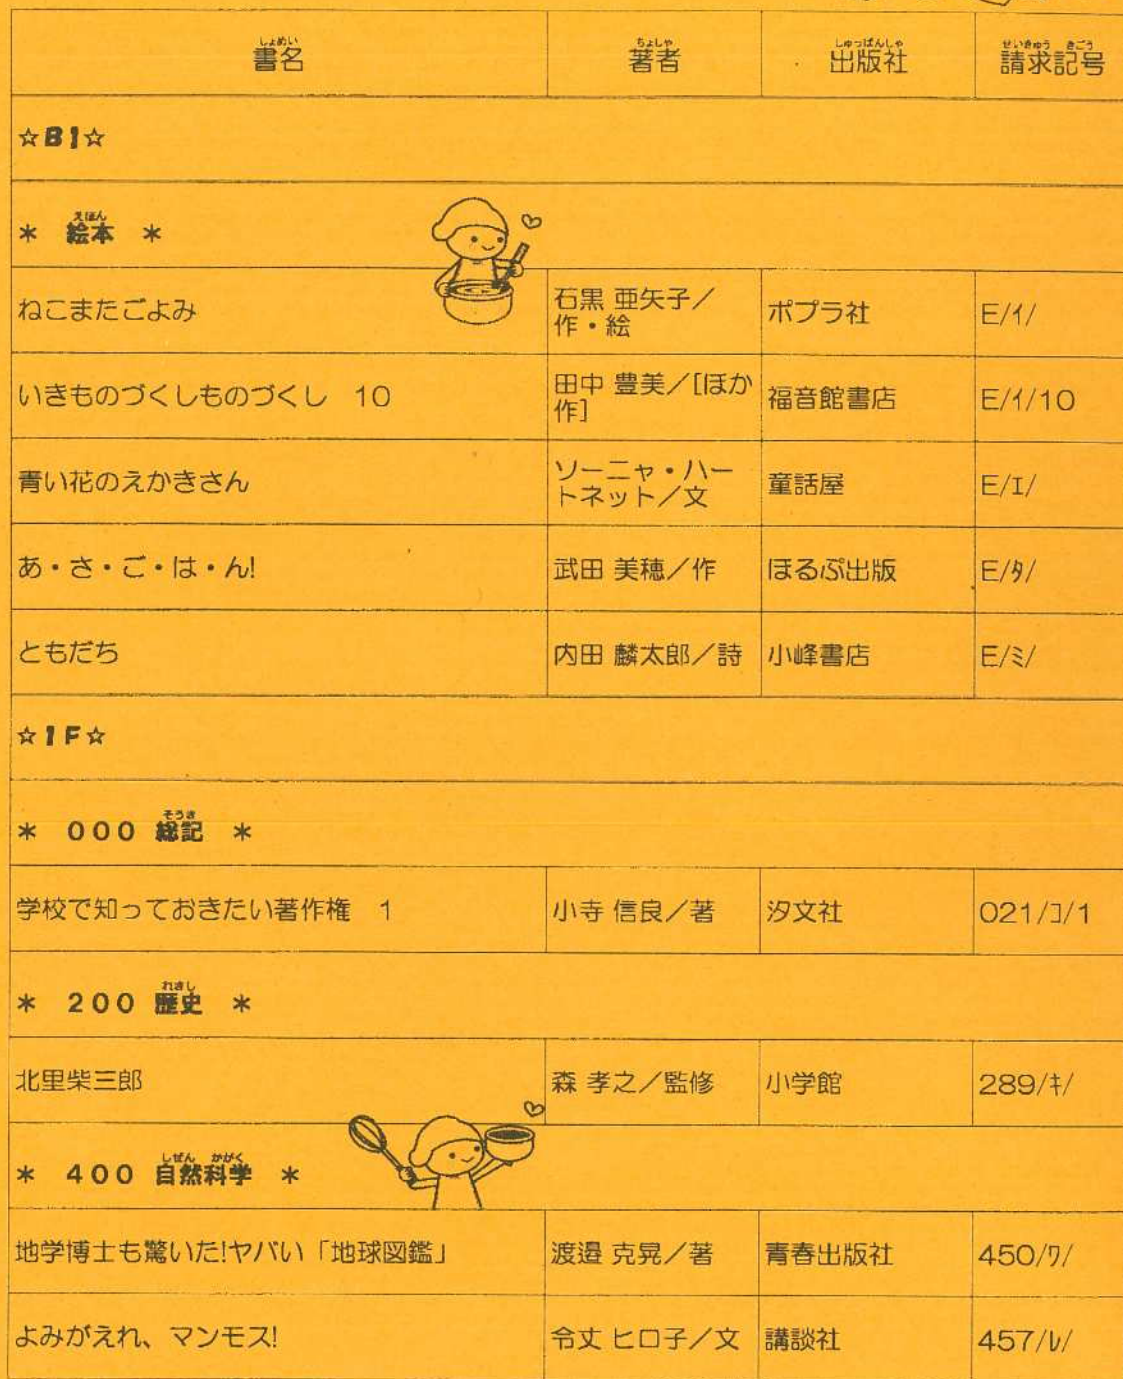 書名 著者 出版社 請求記号
☆B1☆
* 絵本 *
ねこまたごよみ 石黒 亜矢子/作・絵 ポプラ社 E/イ/
いきものづくしものづくし 10 田中 豊美/[ほか作] 福音館書店 E/イ/10
青い花のえかきさん ソーニャ・ハートネット/文 童話屋 E/エ/
あ・さ・ご・は・ん! 武田 美穂/作 ほるぷ出版 E/タ/
ともだち 内田 麟太郎/詩 小峰書店 E/ミ/
☆1F☆
* 000 総記 *
学校で知っておきたい著作権 1 小寺 信良/著 汐文社 021/コ/1
* 200 歴史 *
北里柴三郎 森 孝之/監修 小学館 289/キ/
* 400 自然科学 *
地学博士も驚いた!ヤバい「地球図鑑」 渡邉 克晃/著 青春出版社 450/ワ/
よみがえれ、マンモス! 令丈 ヒロ子/文 講談社 457/レ/